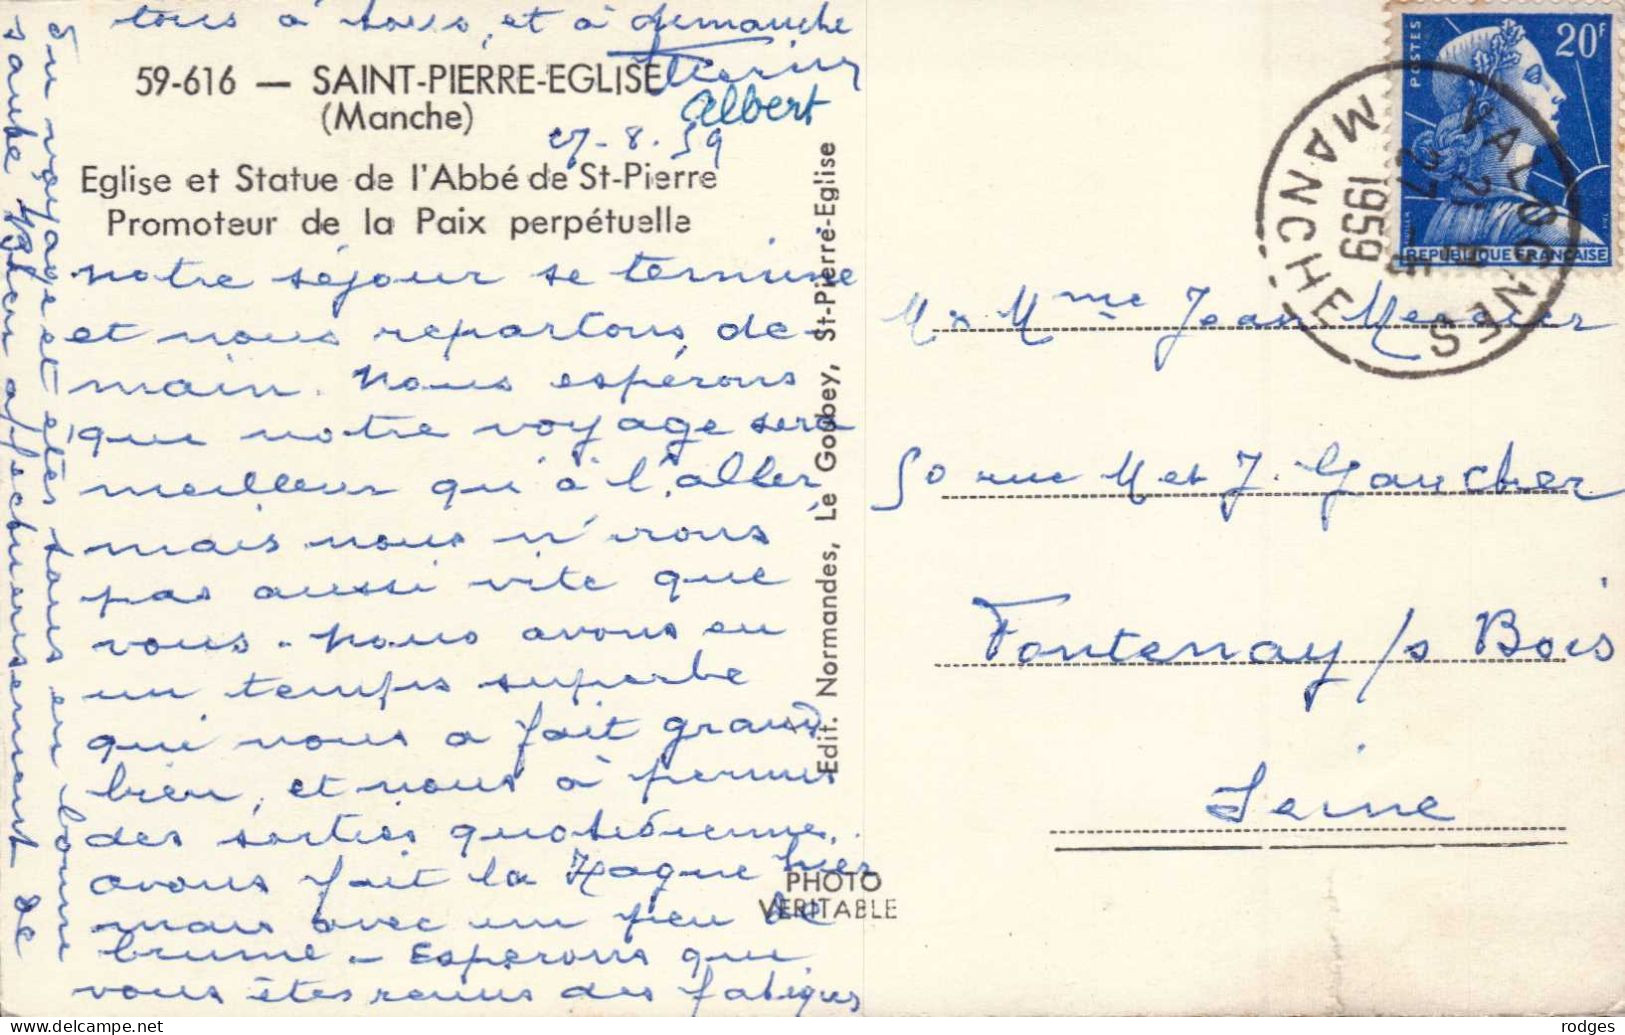 59-616 — SAINT-PIERRE-EGLISE
(Manche)
Eglise et Statue de l'Abbé de St-Pierre
Promoteur de la Paix perpétuelle
27-8.59
notre séjour se termine
et nous repartons de-
main. Nous espérons
que notre voyage sera
meilleur qu'à l'aller,
mais nous n'irons
pas aussi vite que
vous. Nous avons eu
un temps superbe
qui nous a fait grand
bien, et nous à permis
des sorties quotidienne.
avons fait la Hague hier
mais avec un peu de
brume. Esperons que
vous êtes remis des fatigues
du voyage et êtes tous en bonne
santé. affectueusement de
tous à tous, et à dimanche
Albert
Edit. Normandes, Le Goubey, St-Pierre-Eglise
PHOTO
VERITABLE
POSTES
20F
REPUBLIQUE FRANÇAISE
VALOGNES
MANCHE
21H
27-8
1959
M & Mme Jean Mercier
50 rue M et J. Gaucher
Fontenay /s Bois
Seine
rodges